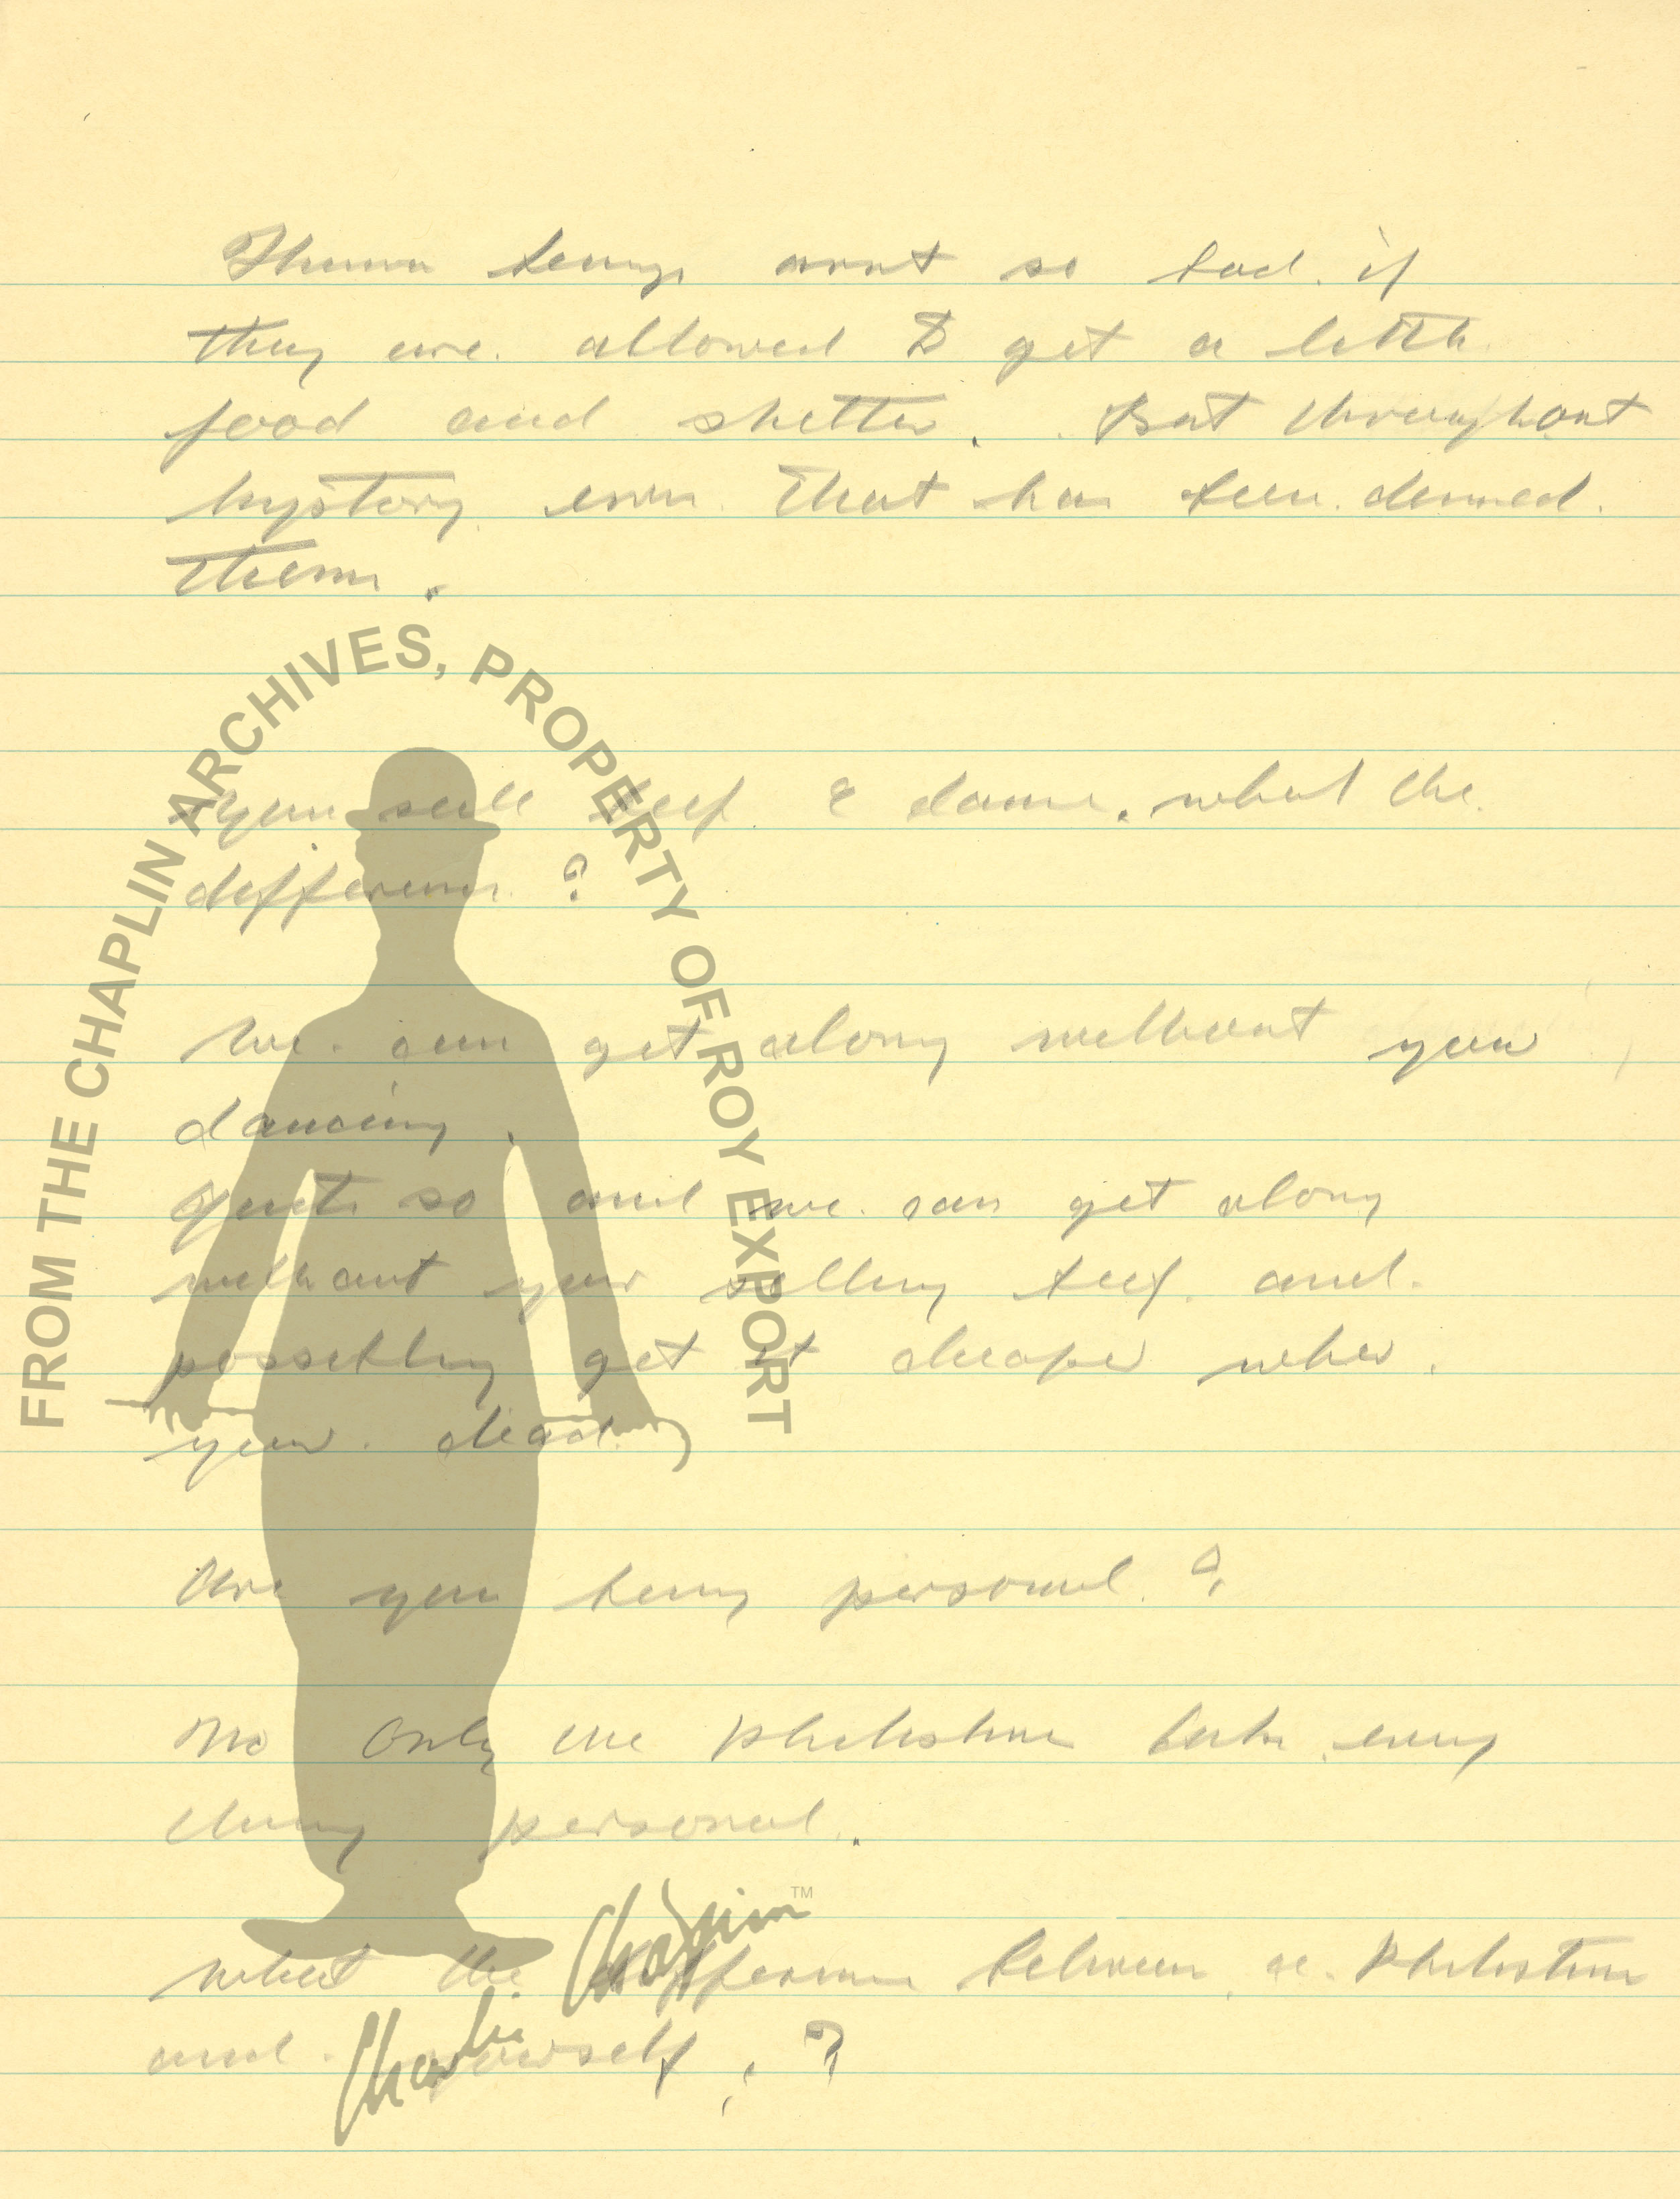 Human beings arnt so bad. if
they are. allowed to get a little
food and shelter. But throughout
hystory even that has been denied.
them.
you sell beef. I dance. what the
difference. ?
We. can get along without your
dancing.
Quite so and we. can get along
without your selling beef. and.
possibly get it cheaper when.
your. dead.
Are you being personal. ?
No only the philistine take every
thing personal.
what the difference between. a. Philistine
and. yourself, ?
FROM THE CHAPLIN ARCHIVES, PROPERTY OF ROY EXPORT
Charlie Chaplin TM